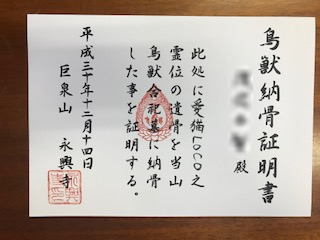 鳥獣納骨証明書
殿
此処に愛猫LOCO之
霊位の遺骨を当山
鳥獣合祀墓に納骨
した事を証明する。
平成三十年十二月十四日
巨泉山 永興寺